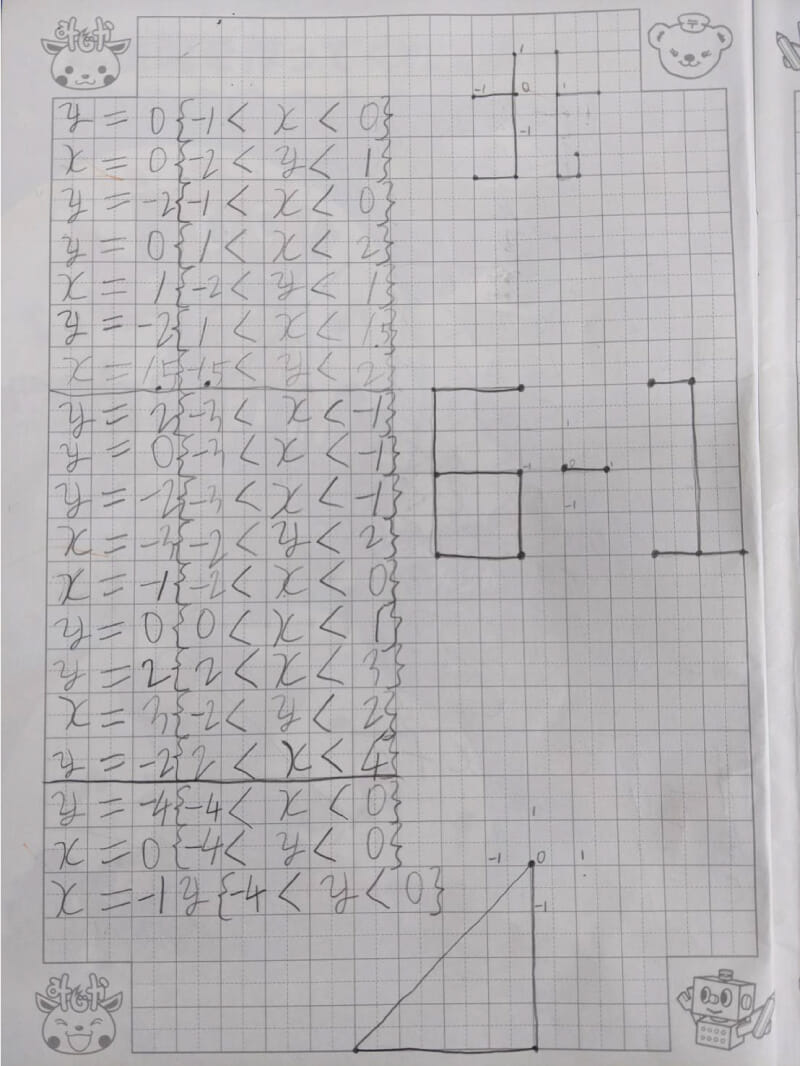 みらい
y = 0{-1 < x < 0}
x = 0{-2 < y < 1}
y = -2{-1 < x < 0}
y = 0{1 < x < 2}
x = 1{-2 < y < 1}
y = -2{1 < x < 1.5}
x = 1.5{-1.5 < y < 2}
y = 2{-3 < x < -1}
y = 0{-3 < x < -1}
y = -2{-3 < x < -1}
x = -3{-2 < y < 2}
x = -1{-2 < x < 0}
y = 0{0 < x < 1}
y = 2{2 < x < 3}
x = 3{-2 < y < 2}
y = -2{2 < x < 4}
y = -4{-4 < x < 0}
x = 0{-4 < y < 0}
x = -1y{-4 < y < 0}
1
-1 0 1
-1
1
-1 0 1
-1
1
-1 0 1
-1